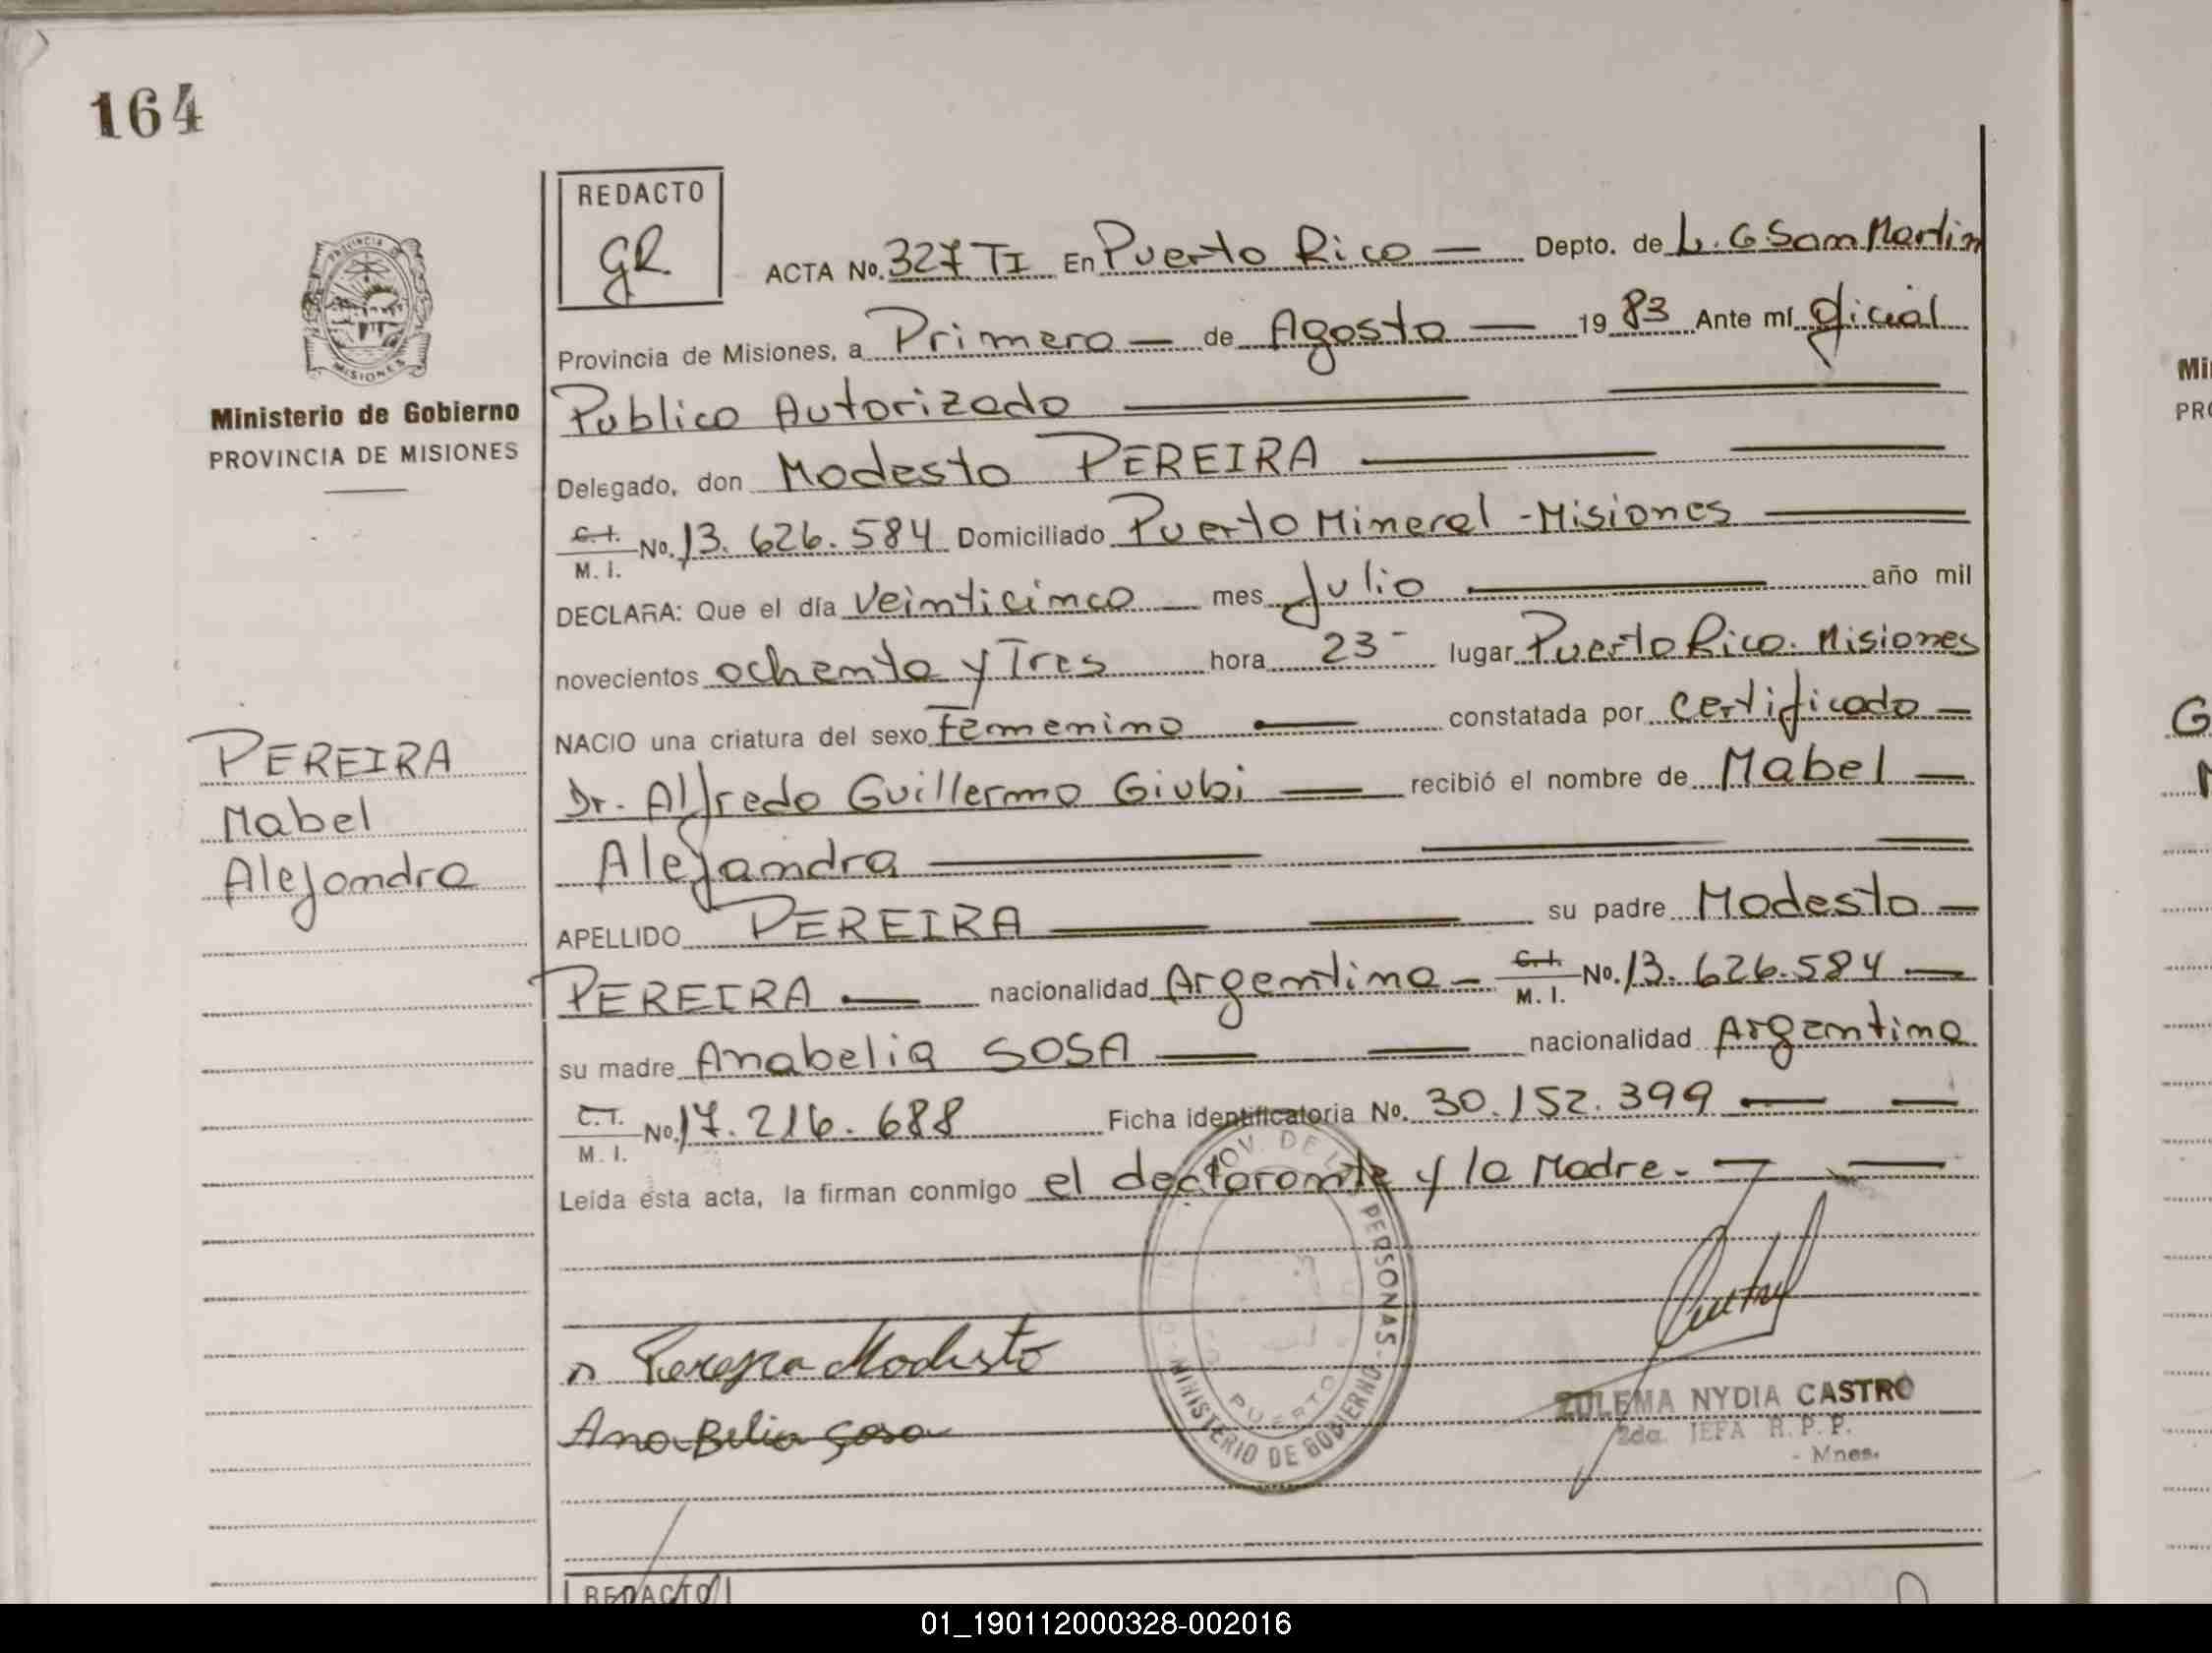 164
REDACTO
GR
ACTA No. 327 TI En Puerto Rico — Depto. de L. G San Martin
Provincia de Misiones, a Primero — de Agosto — 19 83 Ante mí Oficial
Publico Autorizado
Ministerio de Gobierno
PROVINCIA DE MISIONES
Delegado, don Modesto PEREIRA
C.I. M. I. No. 13.626.584 Domiciliado Puerto Mineral - Misiones
DECLARA: Que el día Veinticinco mes Julio año mil
novecientos ochenta y Tres hora 23- lugar Puerto Rico. Misiones
NACIO una criatura del sexo Femenino constatada por certificado —
Dr. Alfredo Guillermo Giubi — recibió el nombre de Mabel —
Alejandra
PEREIRA
Mabel
Alejandra
APELLIDO PEREIRA su padre Modesto —
PEREIRA — nacionalidad Argentina — C.I. M. I. No. 13.626.584 —
su madre Anabelia SOSA nacionalidad Argentina
C.I. M. I. No. 17.216.688 Ficha identificatoria No. 30.152.399
Leida esta acta, la firman conmigo el declarante y la Madre.
Pereyra Modesto
Ana Belia Sosa
PERSONAS - MINISTERIO DE GOBIERNO
PUERTO
ZULEMA NYDIA CASTRO
2da. JEFA R. P. P.
- Mnes.
REDACTO
01_190112000328-002016